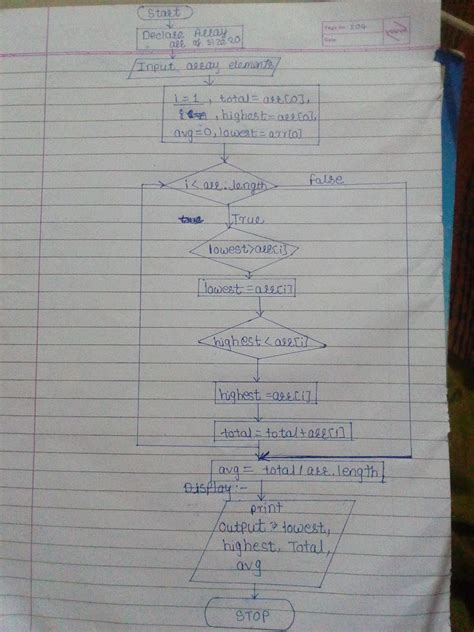 Start
Page No. 204
Date
Declare Array
arr of size 20
Input array elements
i=1, total=arr[0],
, highest=arr[0],
avg=0, lowest=arr[0]
i<arr.length
false
true True
lowest>arr[i]
lowest=arr[i]
highest<arr[i]
highest=arr[i]
total=total+arr[i]
avg= total/arr.length
Display:-
print
output > lowest,
highest, Total,
avg
STOP